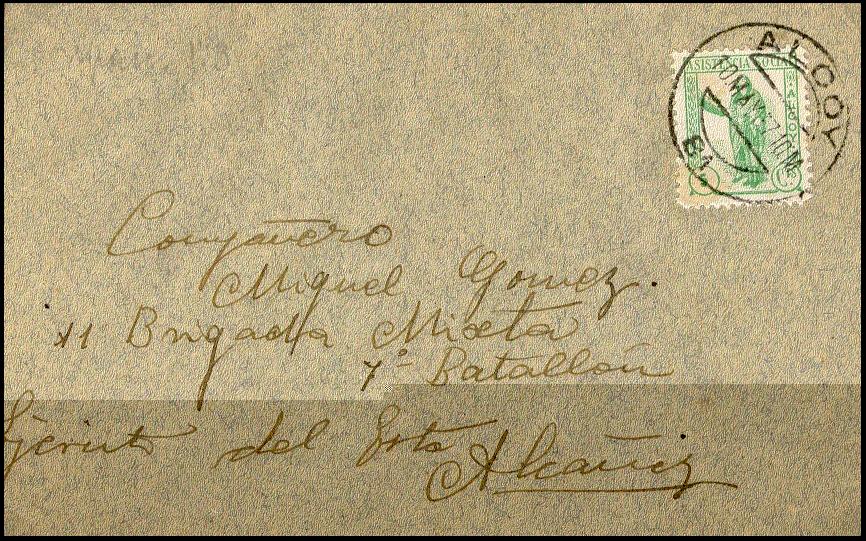 ASISTENCIA SOCIAL
ALCOY
ALCOY
Compañero
Miguel Gomez.
Brigada Mixta
7º Batallón
Ejercito del Este
Alcañiz